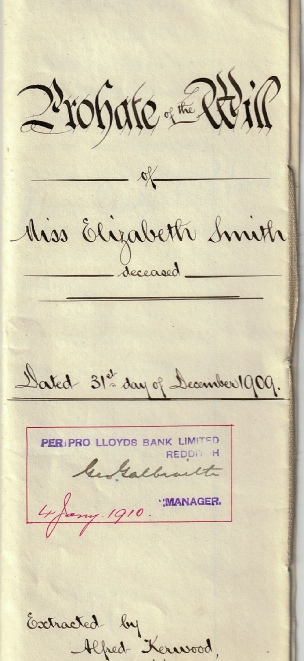 Probate of the Will
of
Miss Elizabeth Smith
deceased
Dated 31st day of December 1909.
PER PRO LLOYDS BANK LIMITED
REDDITCH
Geo. Galbraith
MANAGER.
4 Jany. 1910.
Extracted by
Alfred Kerwood,